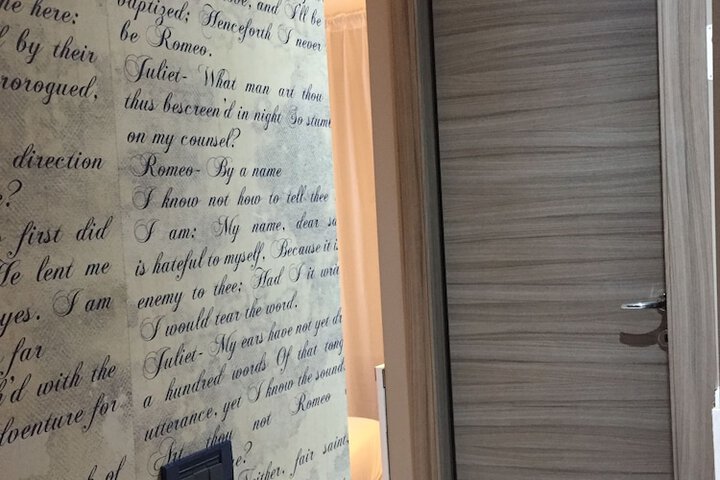 me here:
d by their
rorogued,
direction
?
s first did
He lent me
yes. I am
far
h'd with the
adventure for
baptized; Henceforth I never
be Romeo.
Juliet- What man art thou
thus bescreen'd in night So stum
on my counsel?
Romeo- By a name
I know not how to tell thee
I am: My name, dear sa
is hateful to myself, Because it is
enemy to thee; Had I it writ
I would tear the word.
Juliet- My ears have not yet dr
a hundred words Of that tong
utterance, yet I know the sound.
Art thou not Romeo
Neither, fair saint,